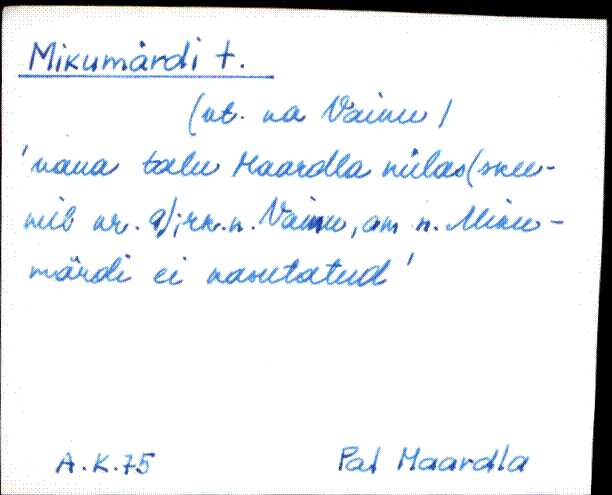 Mikumärdi t.
(vt. ka Vainu)
'vana talu Haardla külas (skee-
mil nr. 9); rk. n. Vainu, am. n. Miku-
märdi ei kasutatud'
A.K.75 Pal Haardla